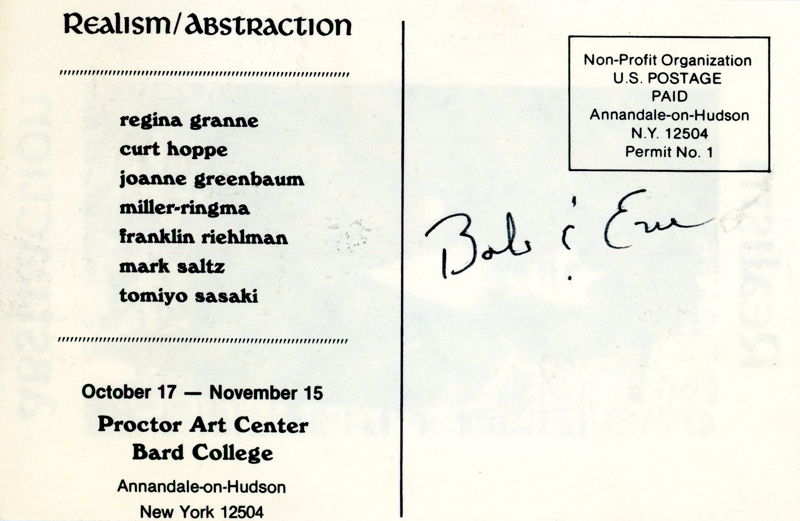 Realism/Abstraction
regina granne
curt hoppe
joanne greenbaum
miller-ringma
franklin riehlman
mark saltz
tomiyo sasaki
October 17 — November 15
Proctor Art Center
Bard College
Annandale-on-Hudson
New York 12504
Non-Profit Organization
U.S. POSTAGE
PAID
Annandale-on-Hudson
N.Y. 12504
Permit No. 1
Bob &